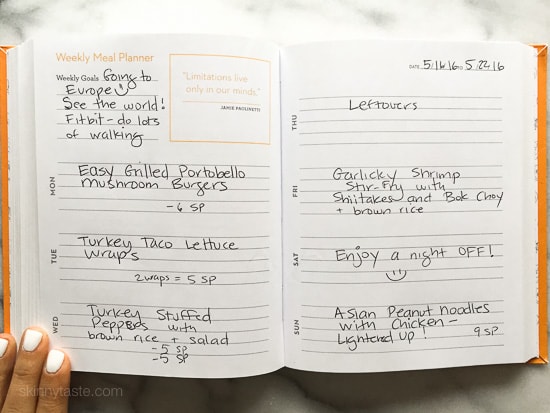 Weekly Meal Planner
Weekly Goals Going to
Europe
See the world!
Fitbit - do lots
of walking
"Limitations live
only in our minds."
JAMIE PAOLINETTI
MON
Easy Grilled Portobello
Mushroom Burgers
- 6 SP
TUE
Turkey Taco Lettuce
Wraps
2 wraps = 5 SP
WED
Turkey Stuffed
Peppers with
brown rice + salad
- 5 SP
- 5 SP
DATE 5/16/16 TO 5/22/16
THU
Leftovers
FRI
Garlicky Shrimp
Stir-Fry with
Shiitakes and Bok Choy
+ brown rice
SAT
Enjoy a night OFF!
SUN
Asian Peanut Noodles
with Chicken -
Lightened Up!
9 SP
skinnytaste.com